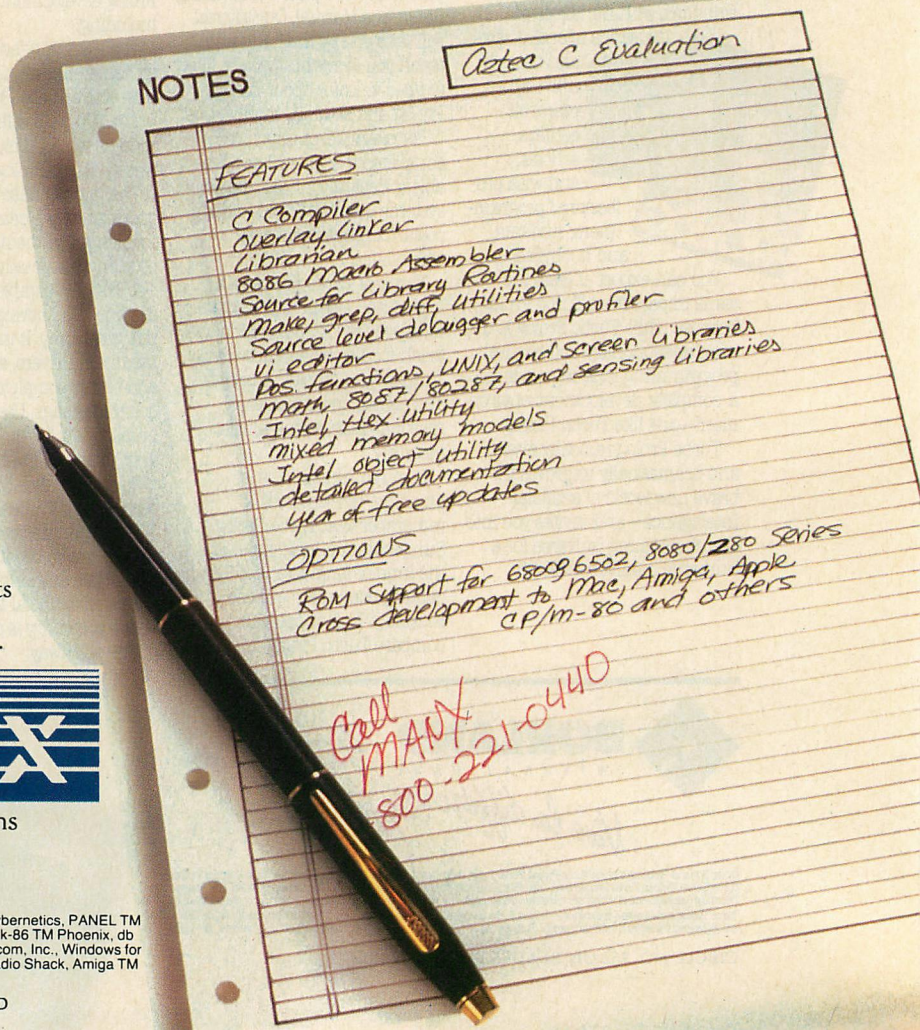 NOTES
Aztec C Evaluation
FEATURES
C Compiler
Overlay Linker
Librarian
8086 Macro Assembler
Source for Library Routines
Make, grep, diff, utilities
Source level debugger and profiler
vi editor
Dos. functions, UNIX, and screen Libraries
math, 8087/80287, and sensing libraries
Intel Hex utility
mixed memory models
Intel object utility
detailed documentation
year of free updates
OPTIONS
ROM Support for 68009 6502, 8080/Z80 Series
Cross development to Mac, Amiga, Apple
CP/m-80 and others
Call
MANX
800-221-0440
ts
X
ns
bernetics, PANEL TM
k-86 TM Phoenix, db
com, Inc., Windows for
dio Shack, Amiga TM